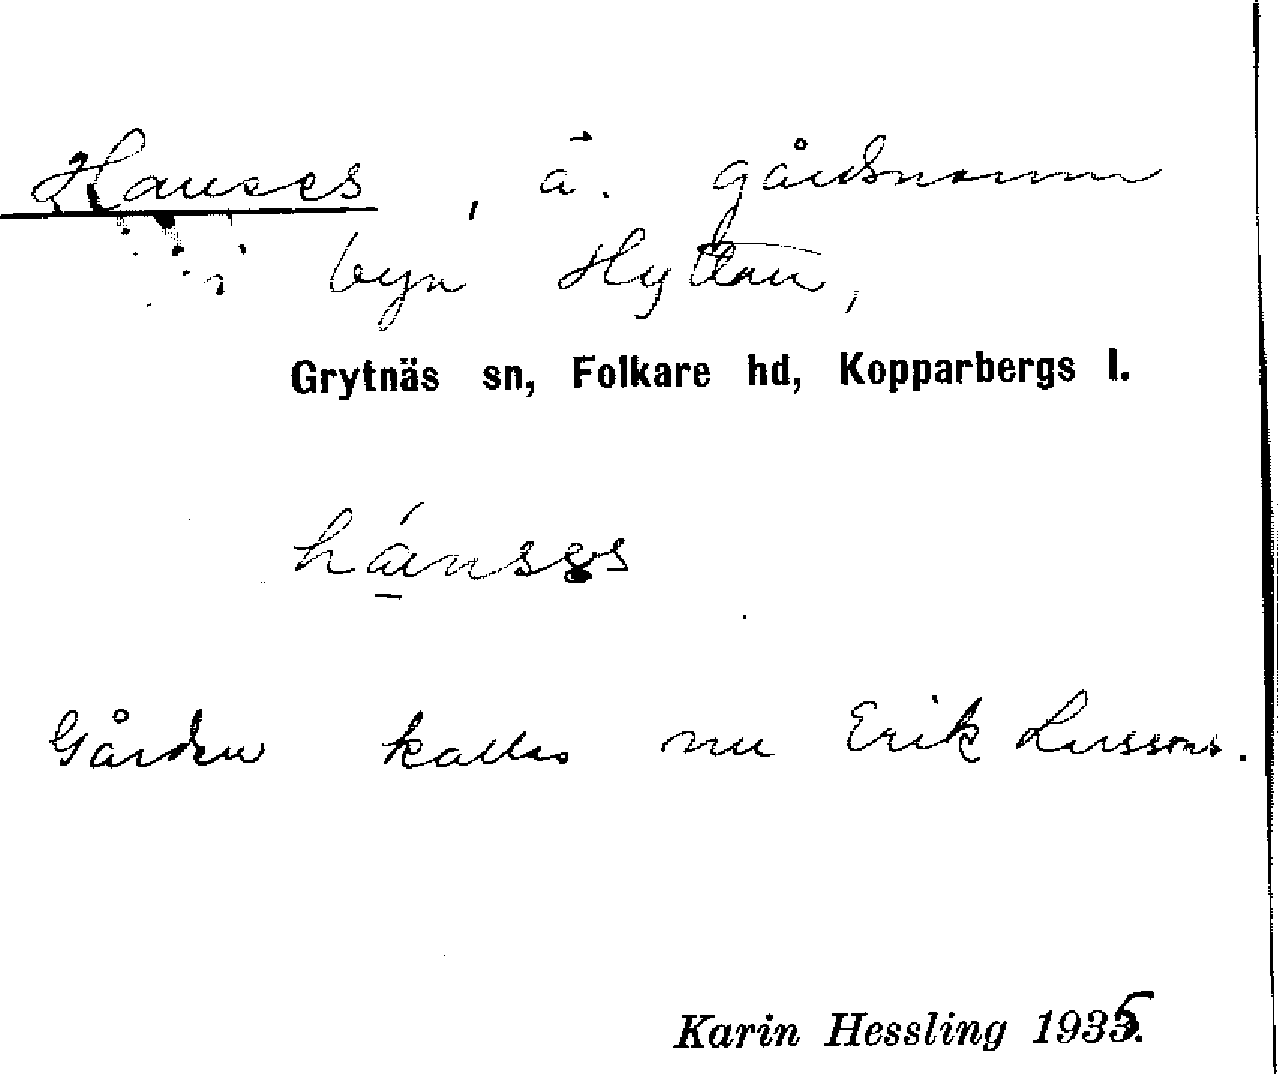 Hanses, ä. gårdsnamn
i byn Hyttan,
Grytnäs sn, Folkare hd, Kopparbergs l.
hánses
Gården kallas nu Erik Larssons.
Karin Hessling 1935.